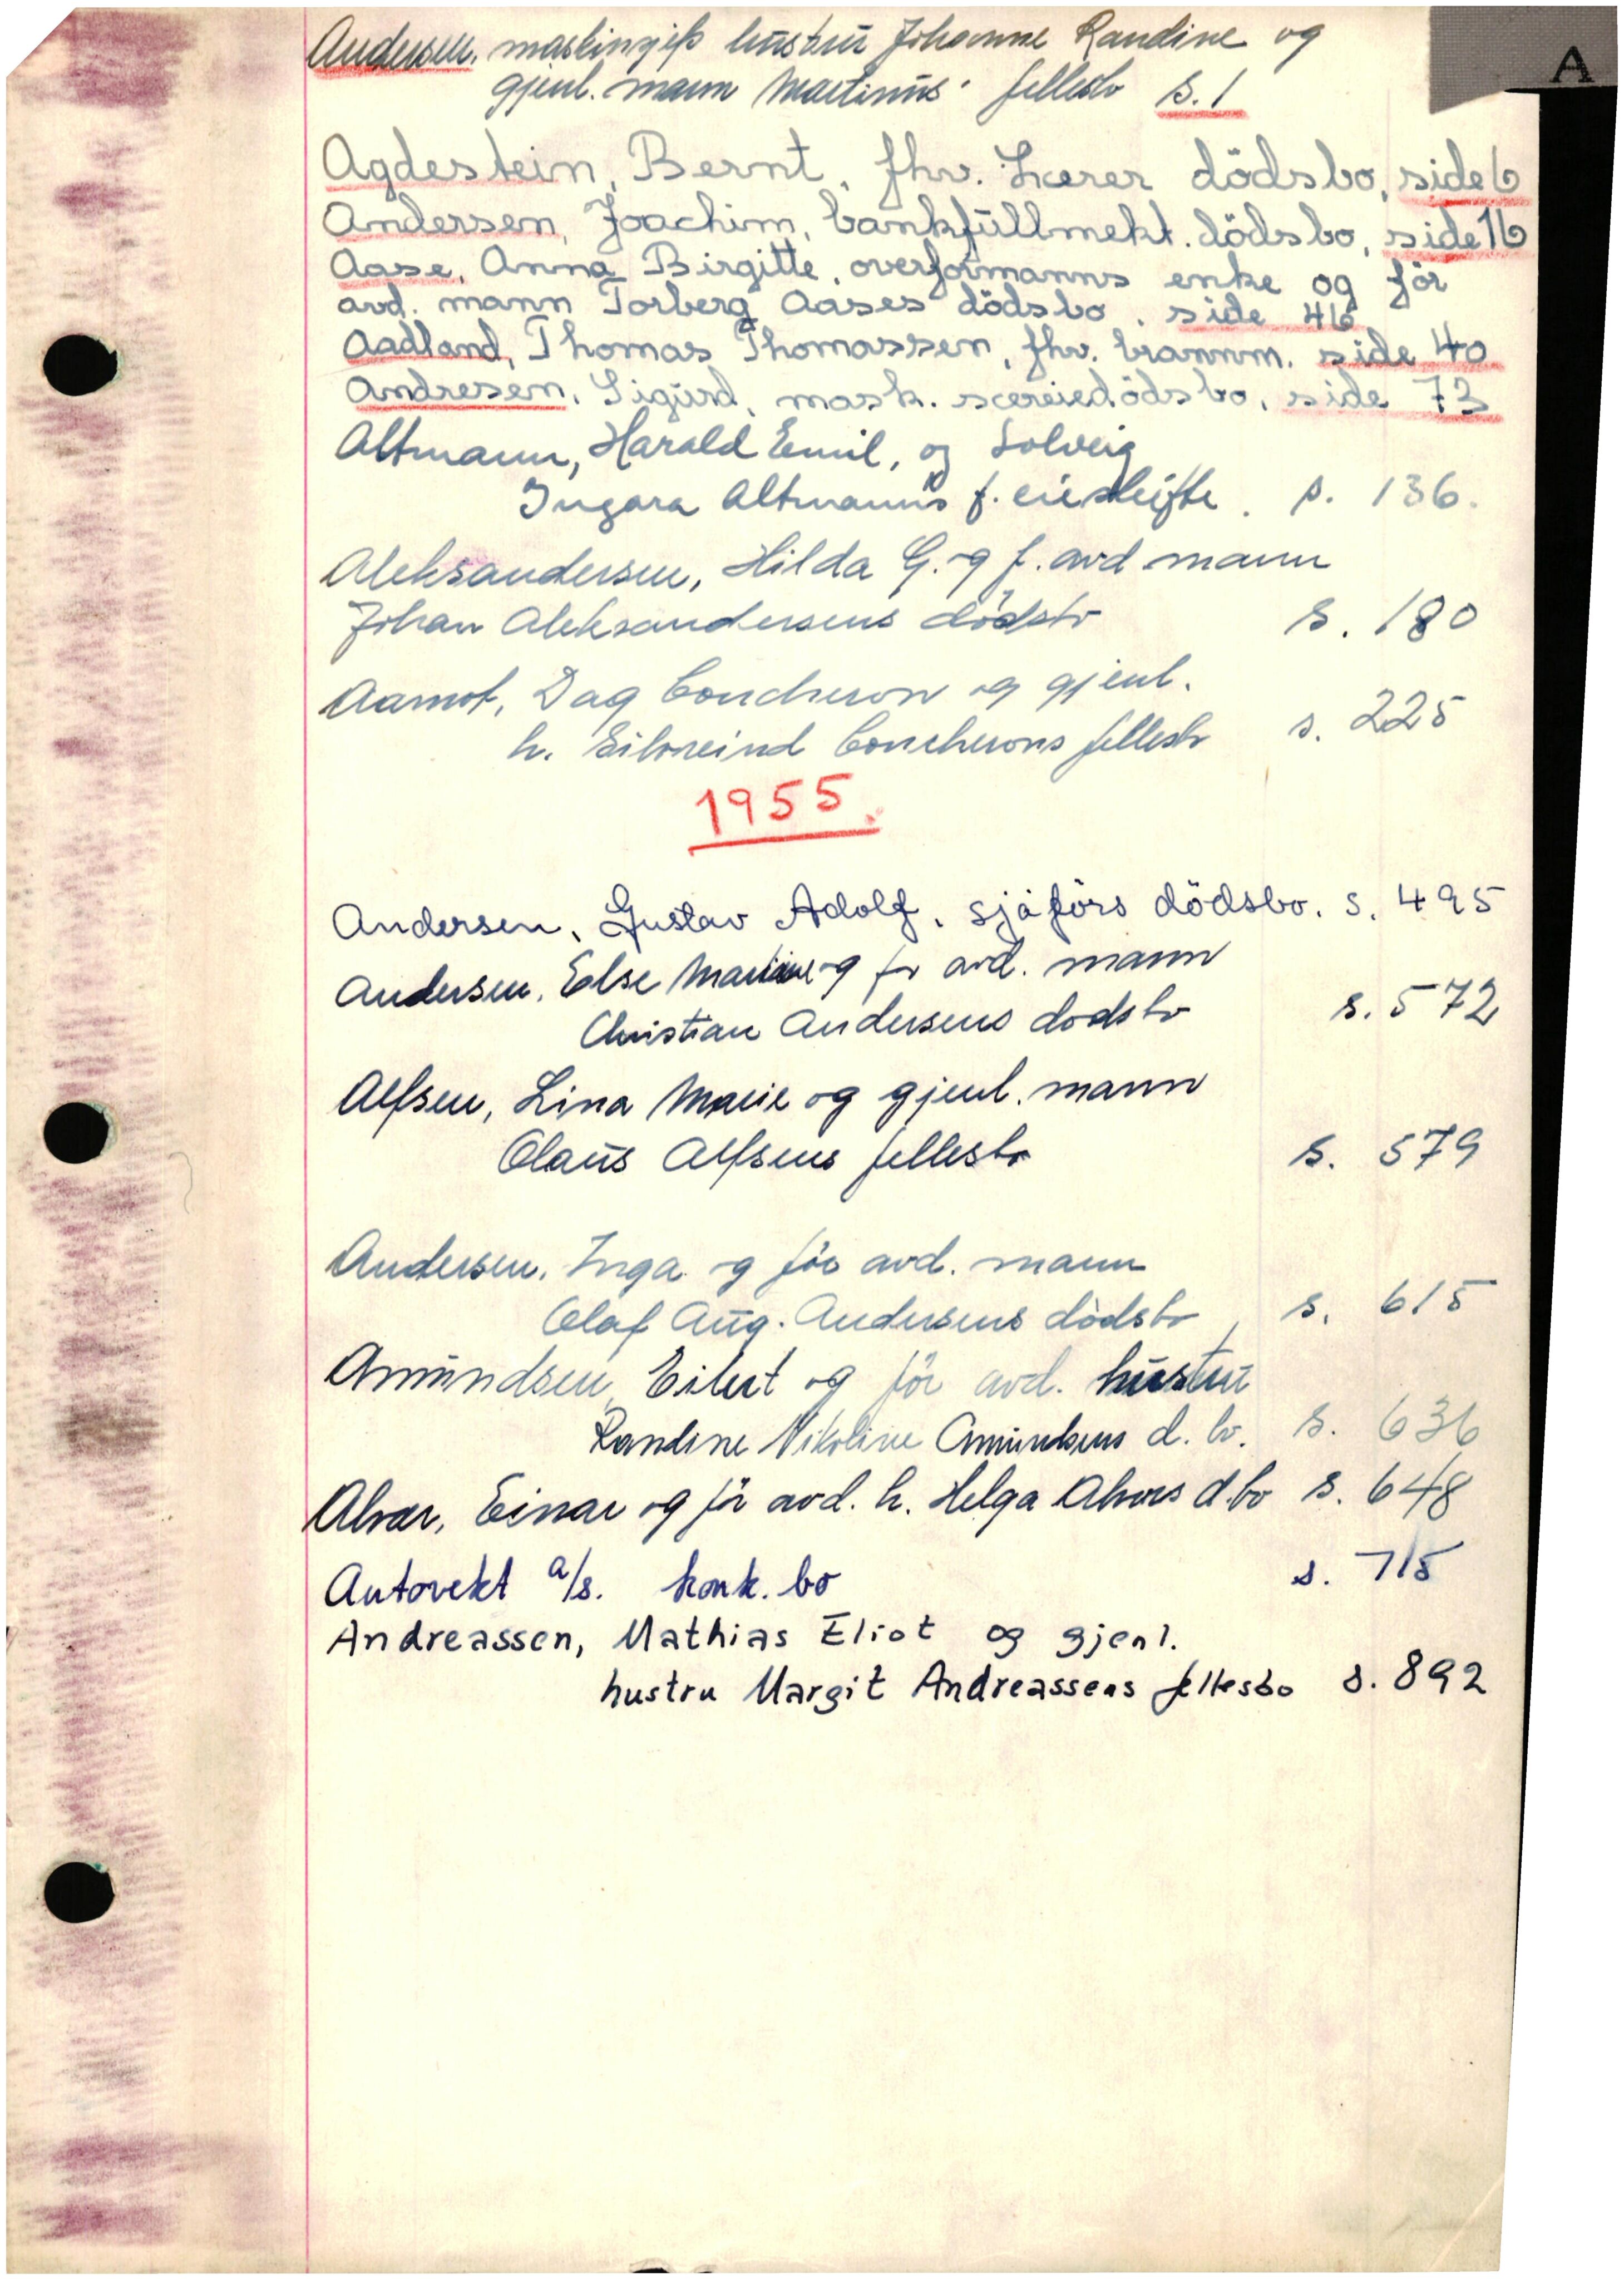 A
Andersen, maskinsjefs hustru Johanne Randine og
gjenl. mann Martinus' fellesbo s. 1
Agdestein, Bernt, fhv. Lærer dödsbo, side 6
Andersen, Joachim, bankfüllmekt. dödsbo, side 16
Aase, Anna Birgitte, overformanns enke og för
avd. mann Torberg Aases dödsbo. side 46
Aadland, Thomas Thomassen, fhv. brannm. side 40
Andresen, Sigurd, mask. dödsbo, side 73
Altmann, Harald Emil, og Solveig
Ingara Altmanns f. eieskifte. s. 136.
Aleksandersen, Hilda G. og f. avd mann
Johan Aleksandersens dödsbo s. 180
Aamot, Dag Coucheron og gjenl.
h. Coucherons fellesbo s. 225
1955.
Andersen, Gustav Adolf, sjåförs dödsbo. s. 495
Andersen, Else og för avd. mann
Christian Andersens dodsbo s. 572
Alfsen, Lina Marie og gjenl. mann
Olaus Alfsens fellesbo s. 579
Andersen, Inga og för avd. mann
Olaf Aug. Andersens dödsbo, s. 615
Amundsen, Eilert og för avd. hustru
Randine Nikoline Amundsens d. bo. s. 636
Alvær, Einar og för avd. h. Helga Alværs d.bo s. 648
Autovekt a/s. konk. bo s. 715
Andreassen, Mathias Eliot og gjenl.
hustru Margit Andreassens fellesbo s. 892